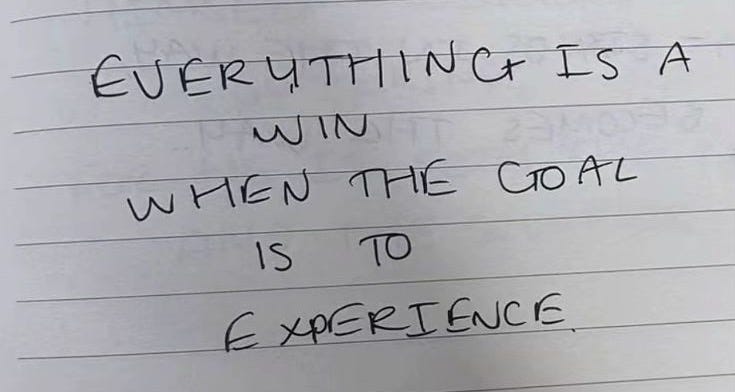 EVERYTHING IS A
WIN
WHEN THE GOAL
IS TO
EXPERIENCE.